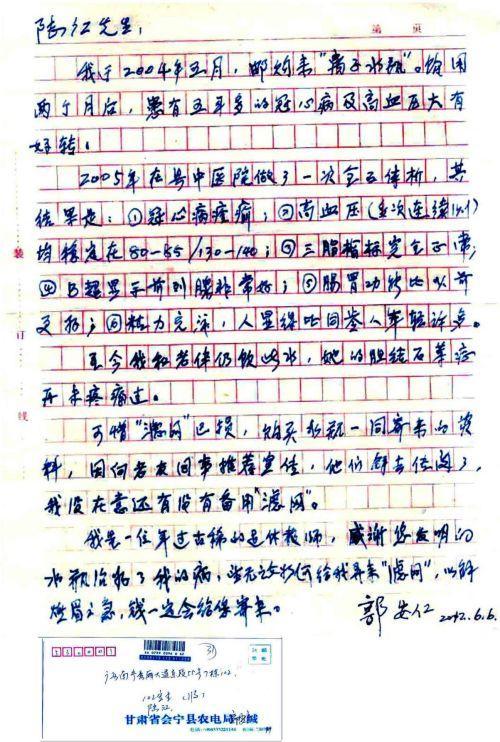 第 页
陆江先生：
我于2004年五月，邮购来“离子水瓶”。饮用
两个月后，患有五年多的冠心病及高血压大有
好转。
2005年在县中医院做了一次全面体析，其
结果是：①冠心病痊愈；②高血压(多次连续
均稳定在80-85/130-140；③三脂指标完全正常；
④B超显示前列腺非常好；⑤肠胃功能比以前
更好；⑥精力充沛，人显得比同龄人年轻许多。
至今我和老伴仍饮此水，她的胆结石等症
再未疼痛过。
可惜“滤网”已损，购买水瓶一同寄来的资
料，因向老友同事推荐宣传，他们都去传阅了，
我没在意还有没有备用“滤网”。
我是一位年过古稀的退休教师，感谢您发明的
水瓶治好了我的病，给我寄来“滤网”，以解
燃眉之急，钱一定会给您寄来。
郭安仁 2012.6.6.
装
订
线
31
陆江
甘肃省会宁县农电局 城